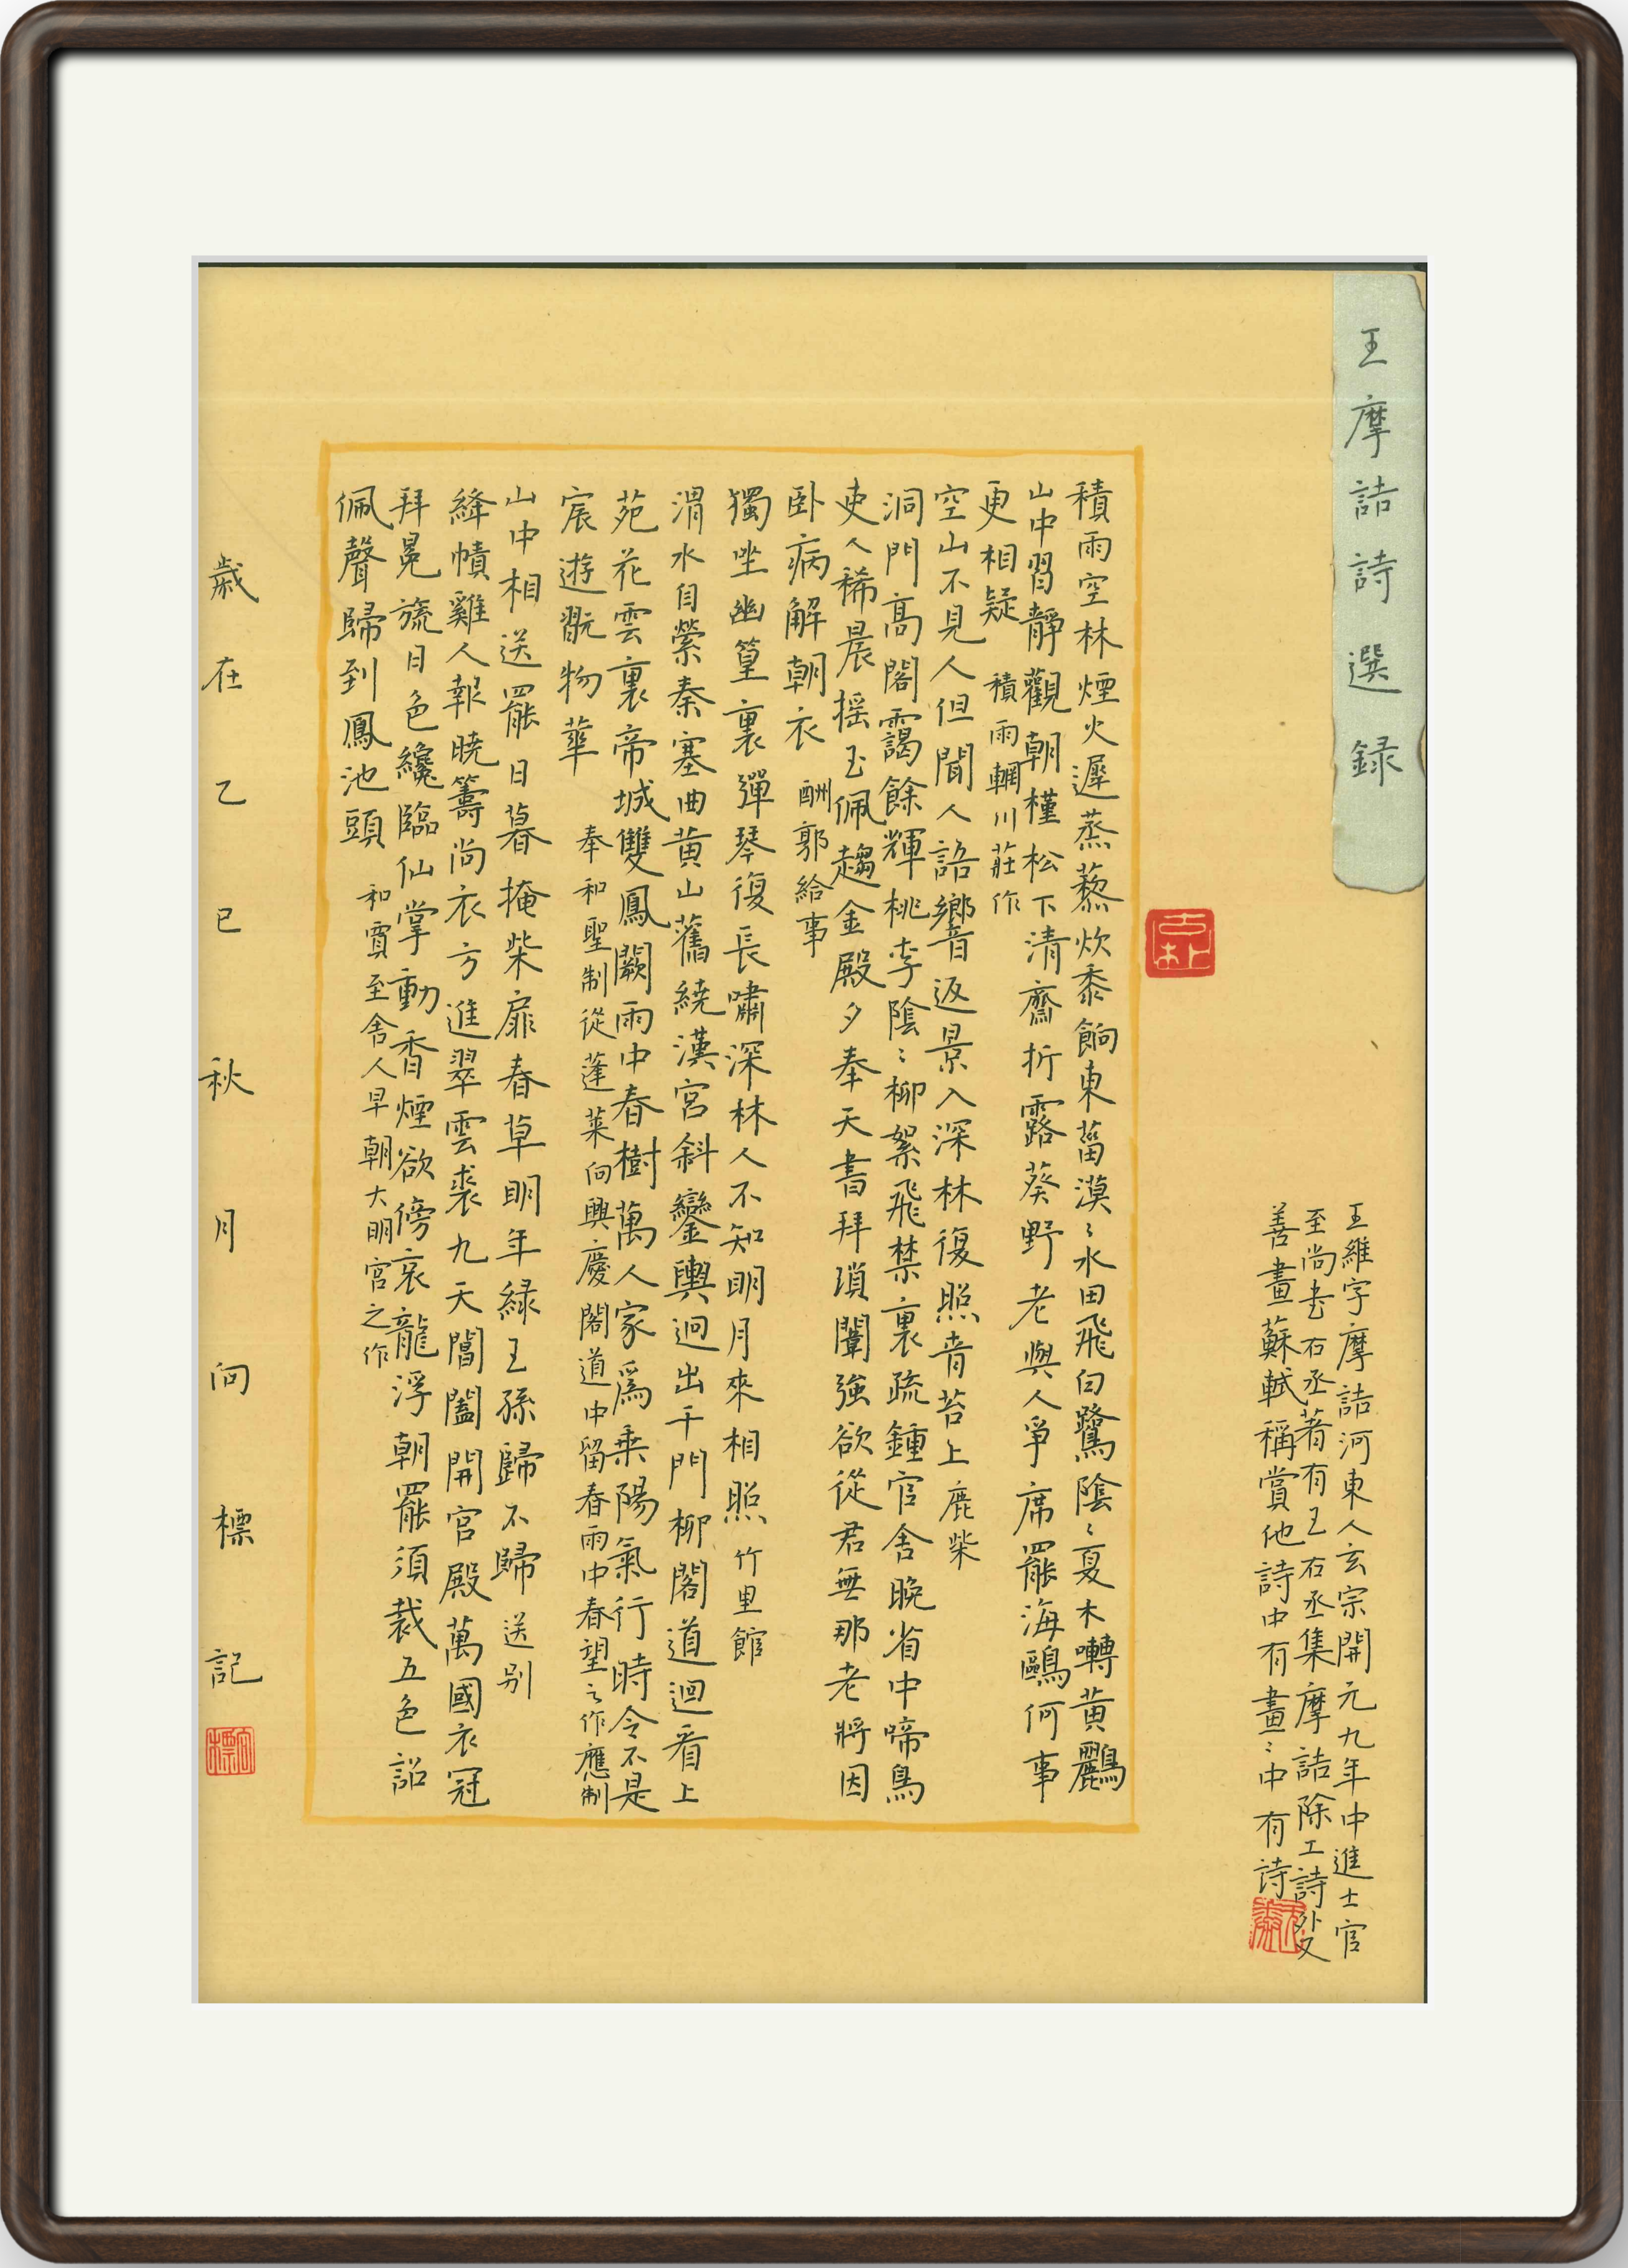 王摩詰詩選録
王維字摩詰河東人玄宗開元九年中進士官
至尚书右丞著有王右丞集摩詰除工詩外又
善畫蘇軾稱賞他詩中有畫〻中有诗
積雨空林煙火遲蒸藜炊黍餉東菑漠〻水田飛白鷺陰〻夏木囀黄鸝
山中習靜觀朝槿松下清齋折露葵野老與人爭席罷海鷗何事
更相疑 積雨輞川莊作
空山不見人但聞人語響返景入深林復照青苔上 鹿柴
洞門高閣靄餘輝桃李陰〻柳絮飛禁裏疏鍾官舍晚省中啼鳥
吏人稀晨摇玉佩趨金殿夕奉天書拜瑣闈強欲從君無那老將因
卧病解朝衣 酬郭給事
獨坐幽篁裏彈琴復長嘯深林人不知明月來相照 竹里館
渭水自縈秦塞曲黄山舊繞漢宫斜鑾輿迥出千門柳閣道迴看上
苑花雲裏帝城雙鳳闕雨中春樹萬人家爲乗陽氣行時令不是
宸遊翫物華 奉和聖制從蓬萊向興慶閣道中留春雨中春望之作應制
山中相送罷日暮掩柴扉春草明年緑王孫歸不歸 送别
絳幘雞人報曉籌尚衣方進翠雲裘九天閶闔開宫殿萬國衣冠
拜冕旒日色纔臨仙掌動香煙欲傍衮龍浮朝罷須裁五色詔
佩聲歸到鳳池頭 和賈至舍人早朝大明宫之作
歲在乙巳秋月向標記